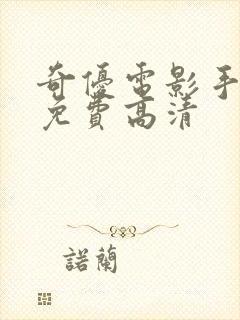 奇優電影手
免費高清
諾蘭